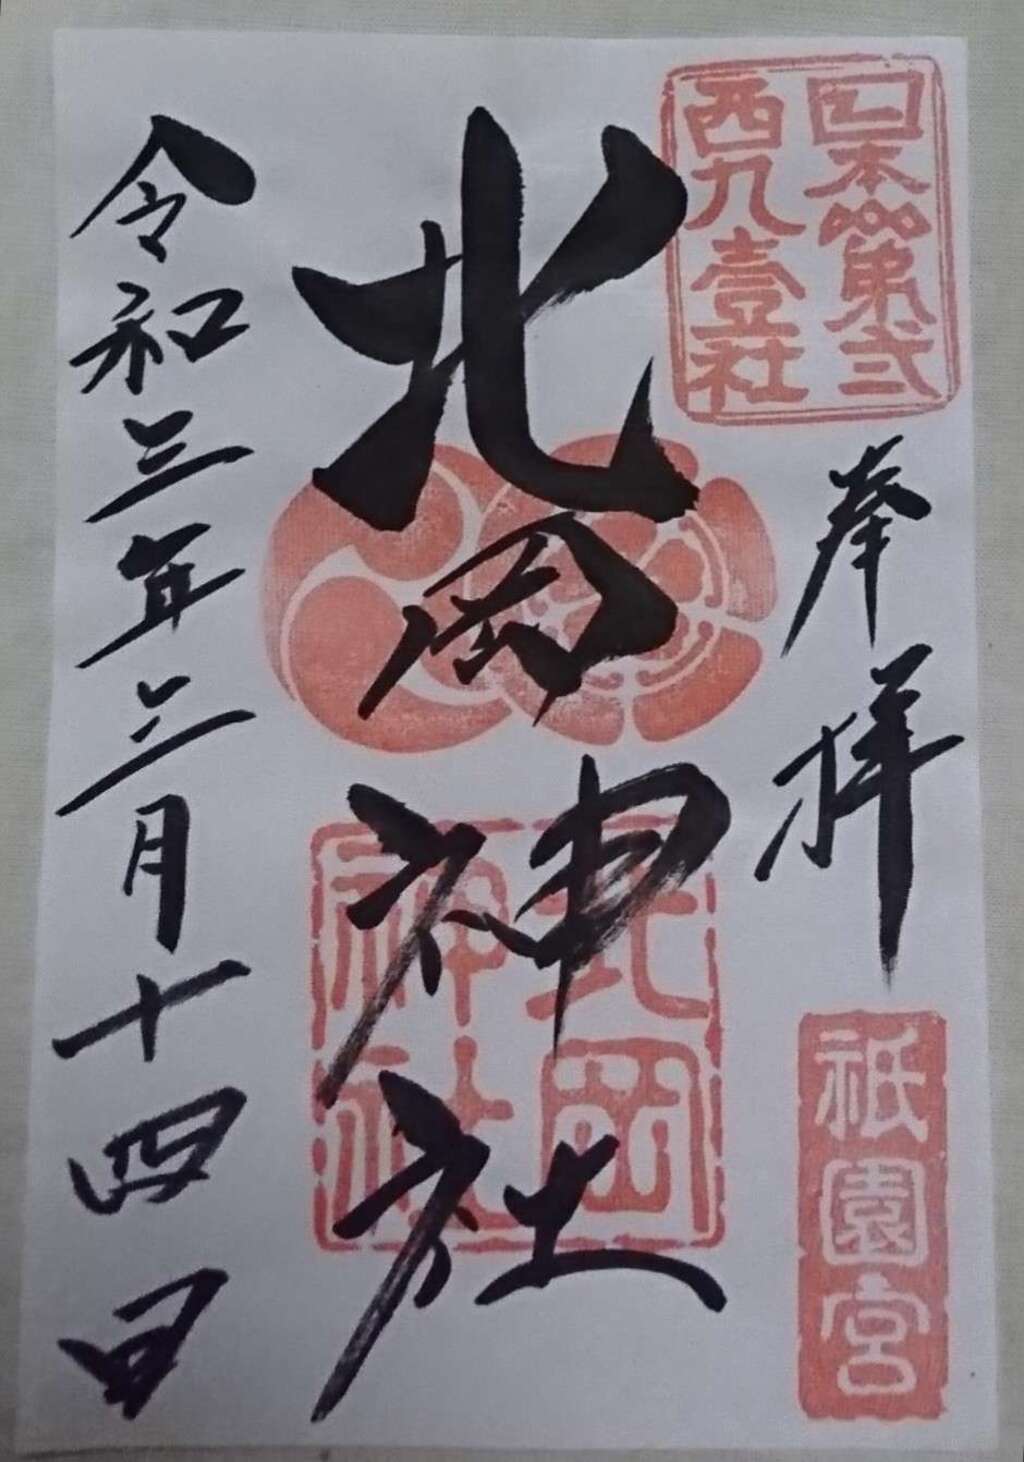 日本第弐
西九壱社
奉拝
祇園宮
北岡神社
北岡
神社
令和三年三月十四日